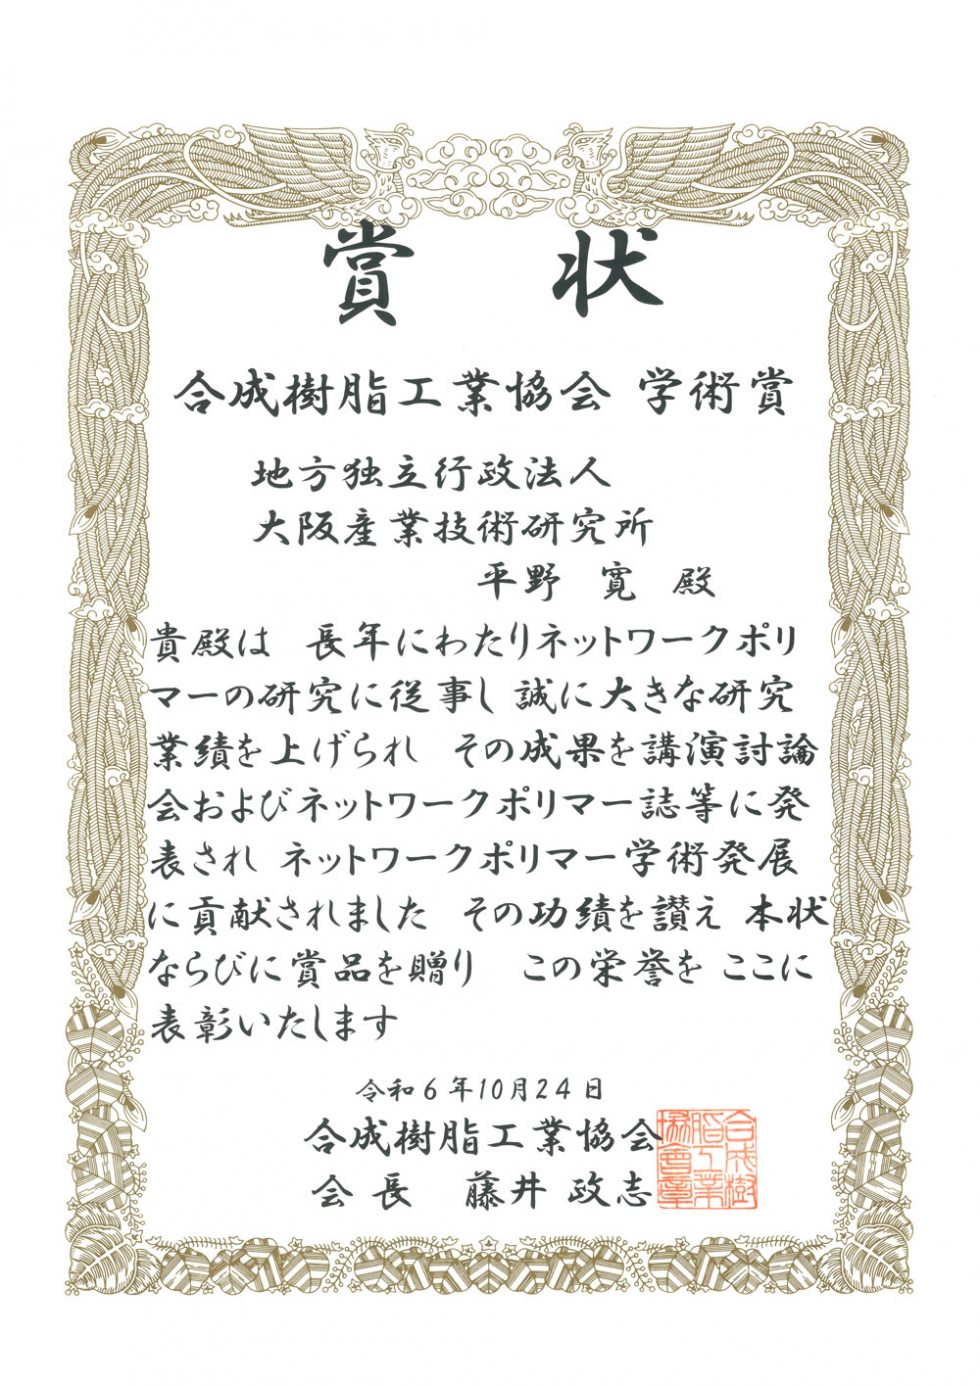 賞 状
合成樹脂工業協会 学術賞
地方独立行政法人
大阪産業技術研究所
平野 寛 殿
貴殿は 長年にわたりネットワークポリ
マーの研究に従事し 誠に大きな研究
業績を上げられ その成果を講演討論
会およびネットワークポリマー誌等に発
表され ネットワークポリマー学術発展
に貢献されました その功績を讃え 本状
ならびに賞品を贈り この栄誉を ここに
表彰いたします
令和6年10月24日
合成樹脂工業協会
会長 藤井 政志
合成樹
脂工業
協會章